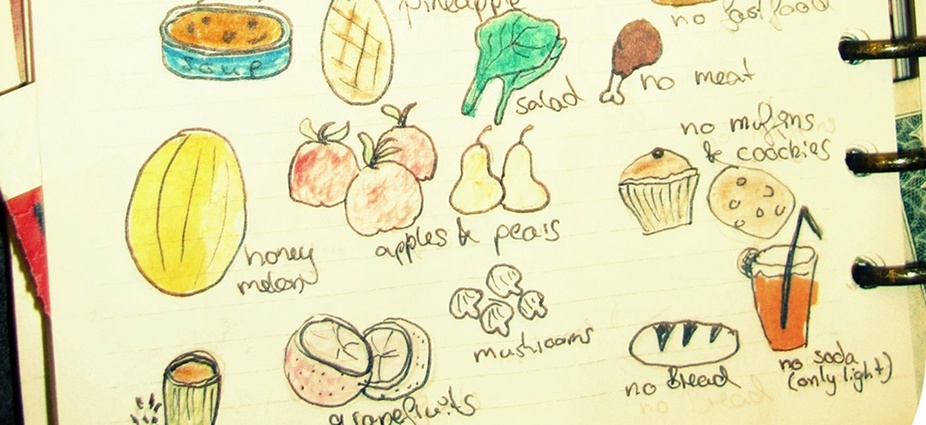 pineapple
no fastfood
soup
salad
no meat
no muffins
& coockies
honey
melon
apples & pears
mushrooms
no bread
no soda
(only light)
grapefruits